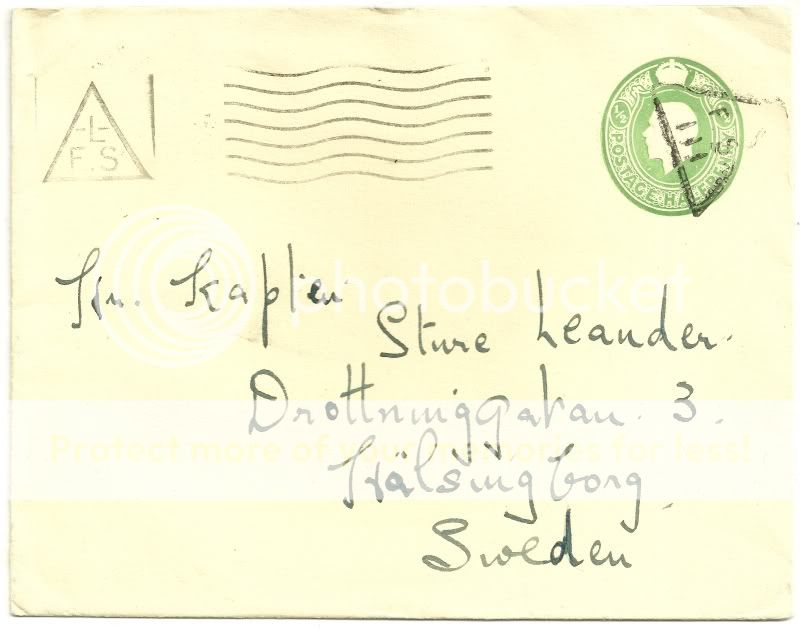 -L-
F.S
½ POSTAGE HALFPENNY
F S
Hr. Kapten
Sture Leander.
photobucket
Drottninggatan. 3.
Protect more of your memories for less!
Hälsingborg
Sweden